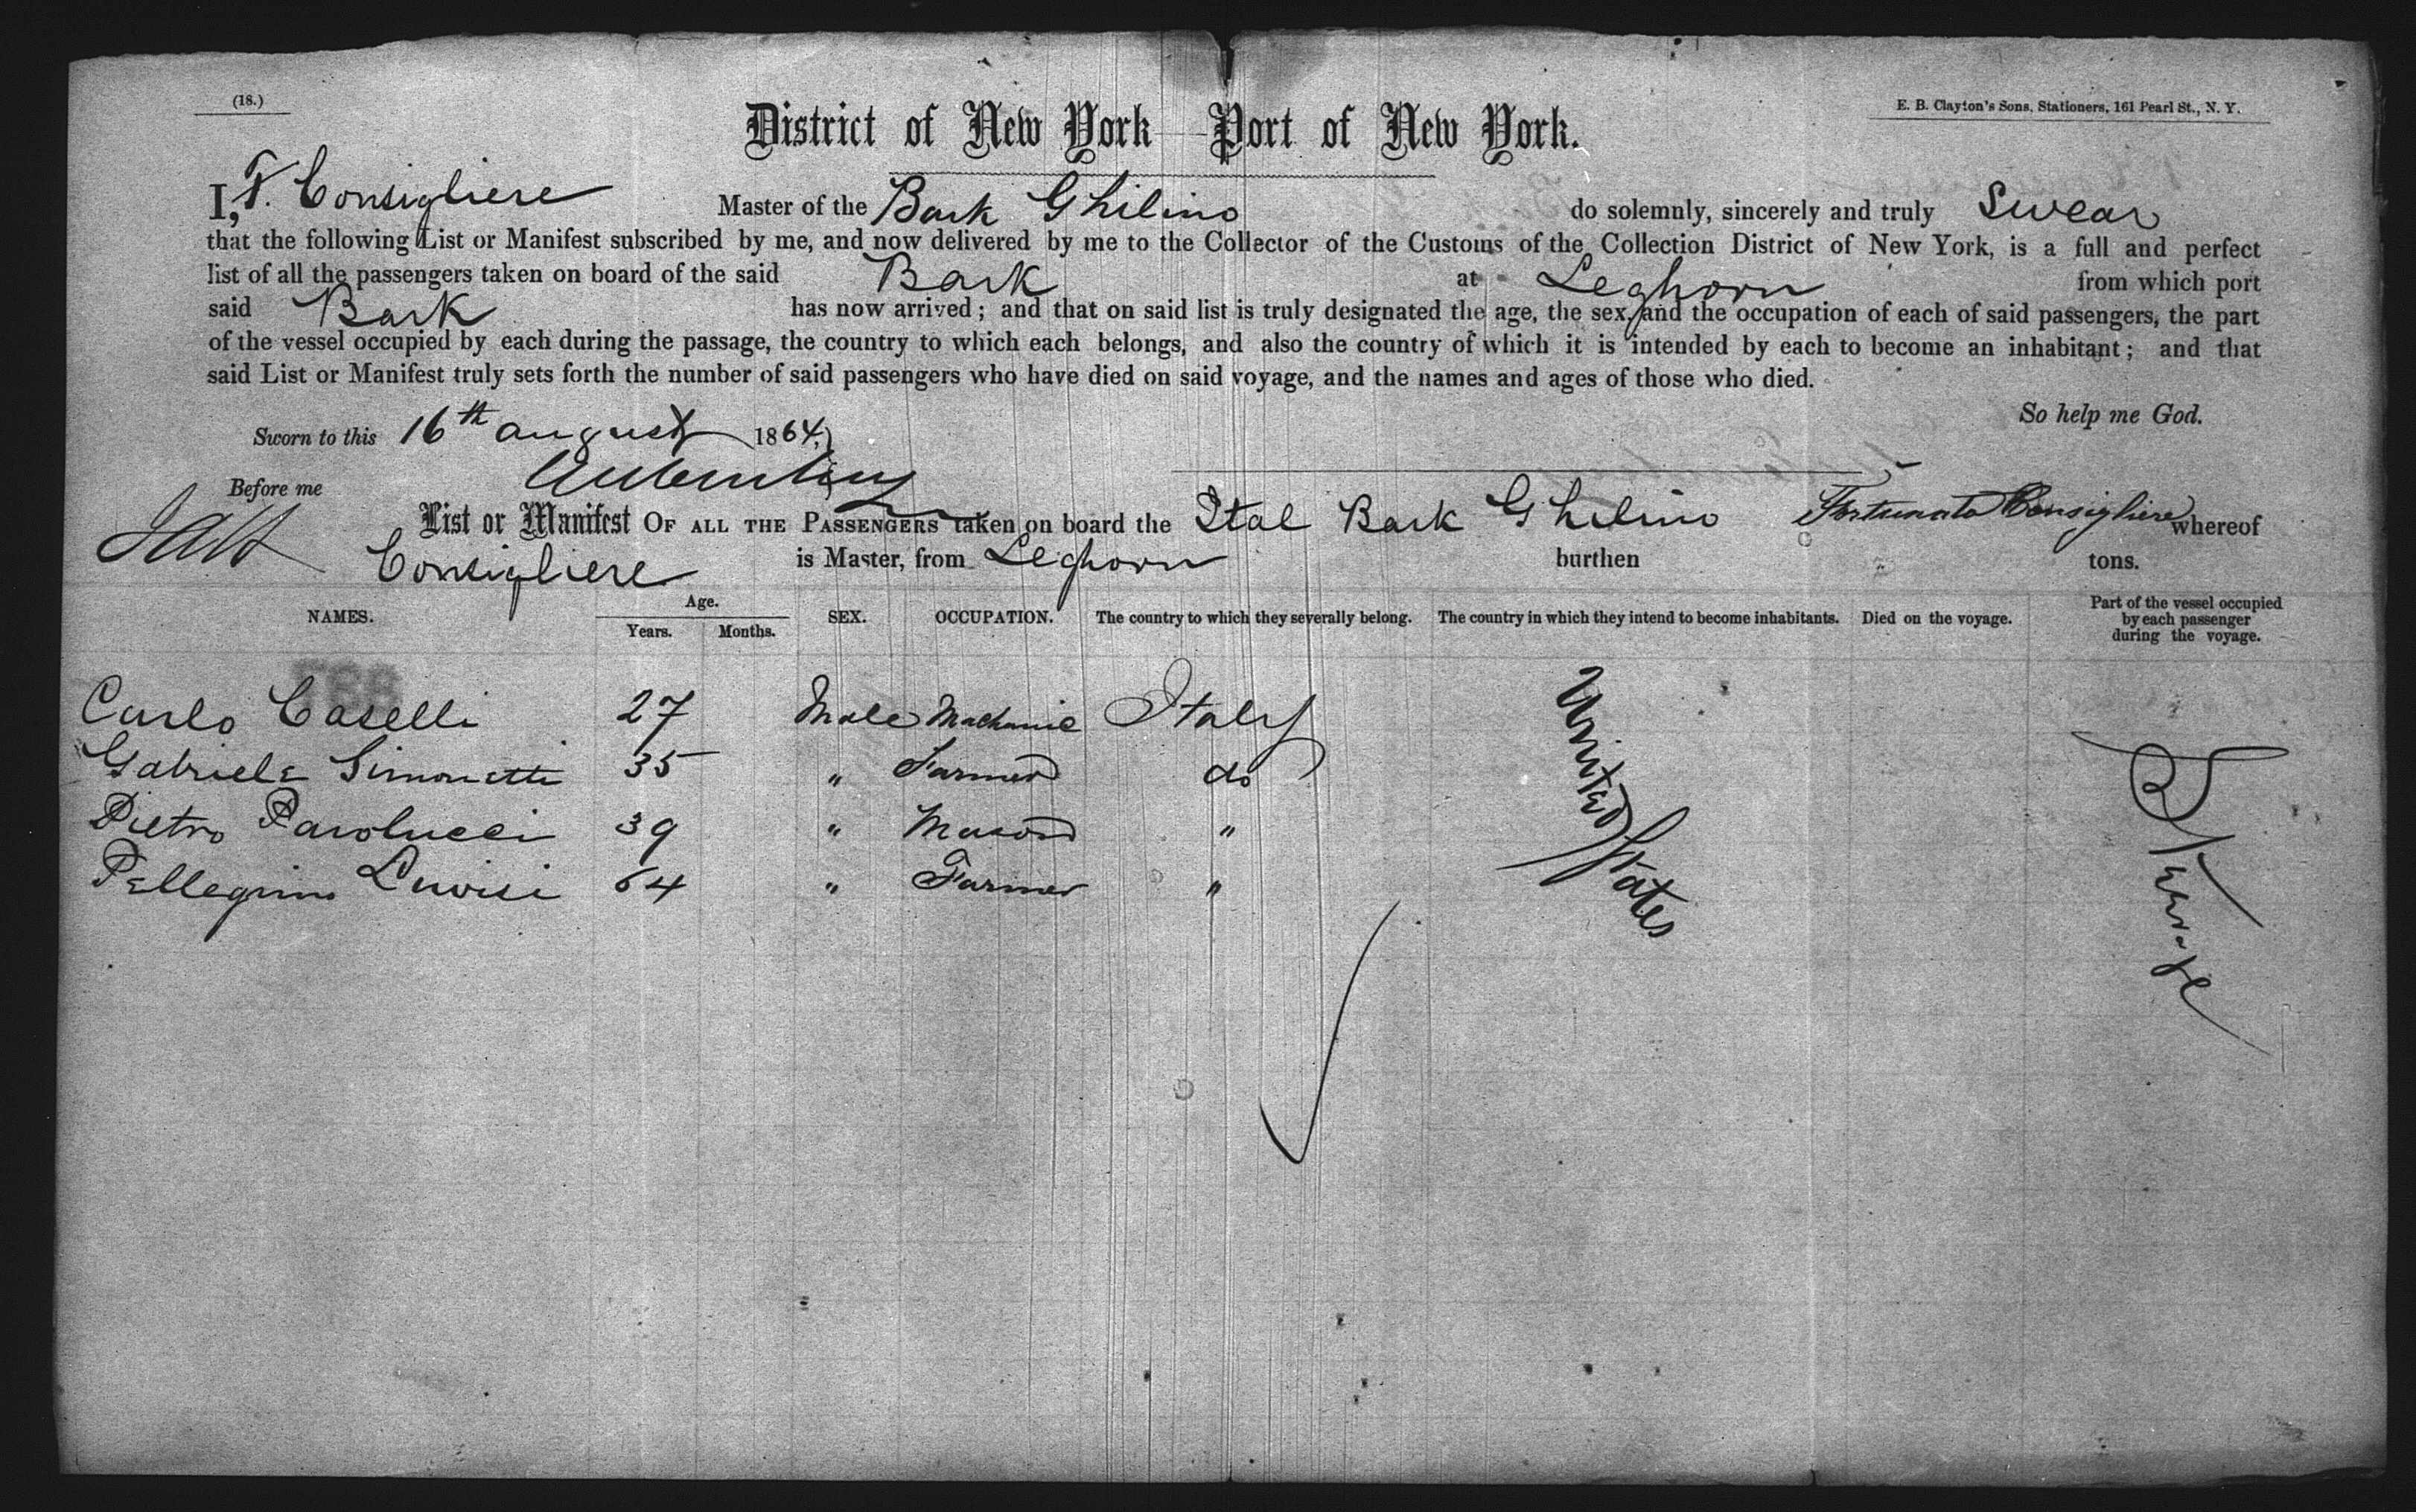 (18.)
E. B. Clayton's Sons, Stationers, 161 Pearl St., N. Y.
District of New York Port of New York.
I, F. Consigliere Master of the Bark Ghilino do solemnly, sincerely and truly Swear
that the following List or Manifest subscribed by me, and now delivered by me to the Collector of the Customs of the Collection District of New York, is a full and perfect
list of all the passengers taken on board of the said Bark at Leghorn from which port
said Bark has now arrived; and that on said list is truly designated the age, the sex, and the occupation of each of said passengers, the part
of the vessel occupied by each during the passage, the country to which each belongs, and also the country of which it is intended by each to become an inhabitant; and that
said List or Manifest truly sets forth the number of said passengers who have died on said voyage, and the names and ages of those who died.
So help me God.
Sworn to this 16th august 1864,
Before me
List or Manifest OF ALL THE PASSENGERS taken on board the Ital Bark Ghilino Fortunato Consigliere whereof
Consigliere is Master, from Leghorn burthen tons.
NAMES. Age. Years. Months. SEX. OCCUPATION. The country to which they severally belong. The country in which they intend to become inhabitants. Died on the voyage. Part of the vessel occupied by each passenger during the voyage.
Carlo Caselli 27 Male Mechanic Italy United States Steerage
Gabriele Simonetti 35 " Farmer do
Pietro Paolucci 39 " Mason "
Pellegrino Luvisi 64 " Farmer "